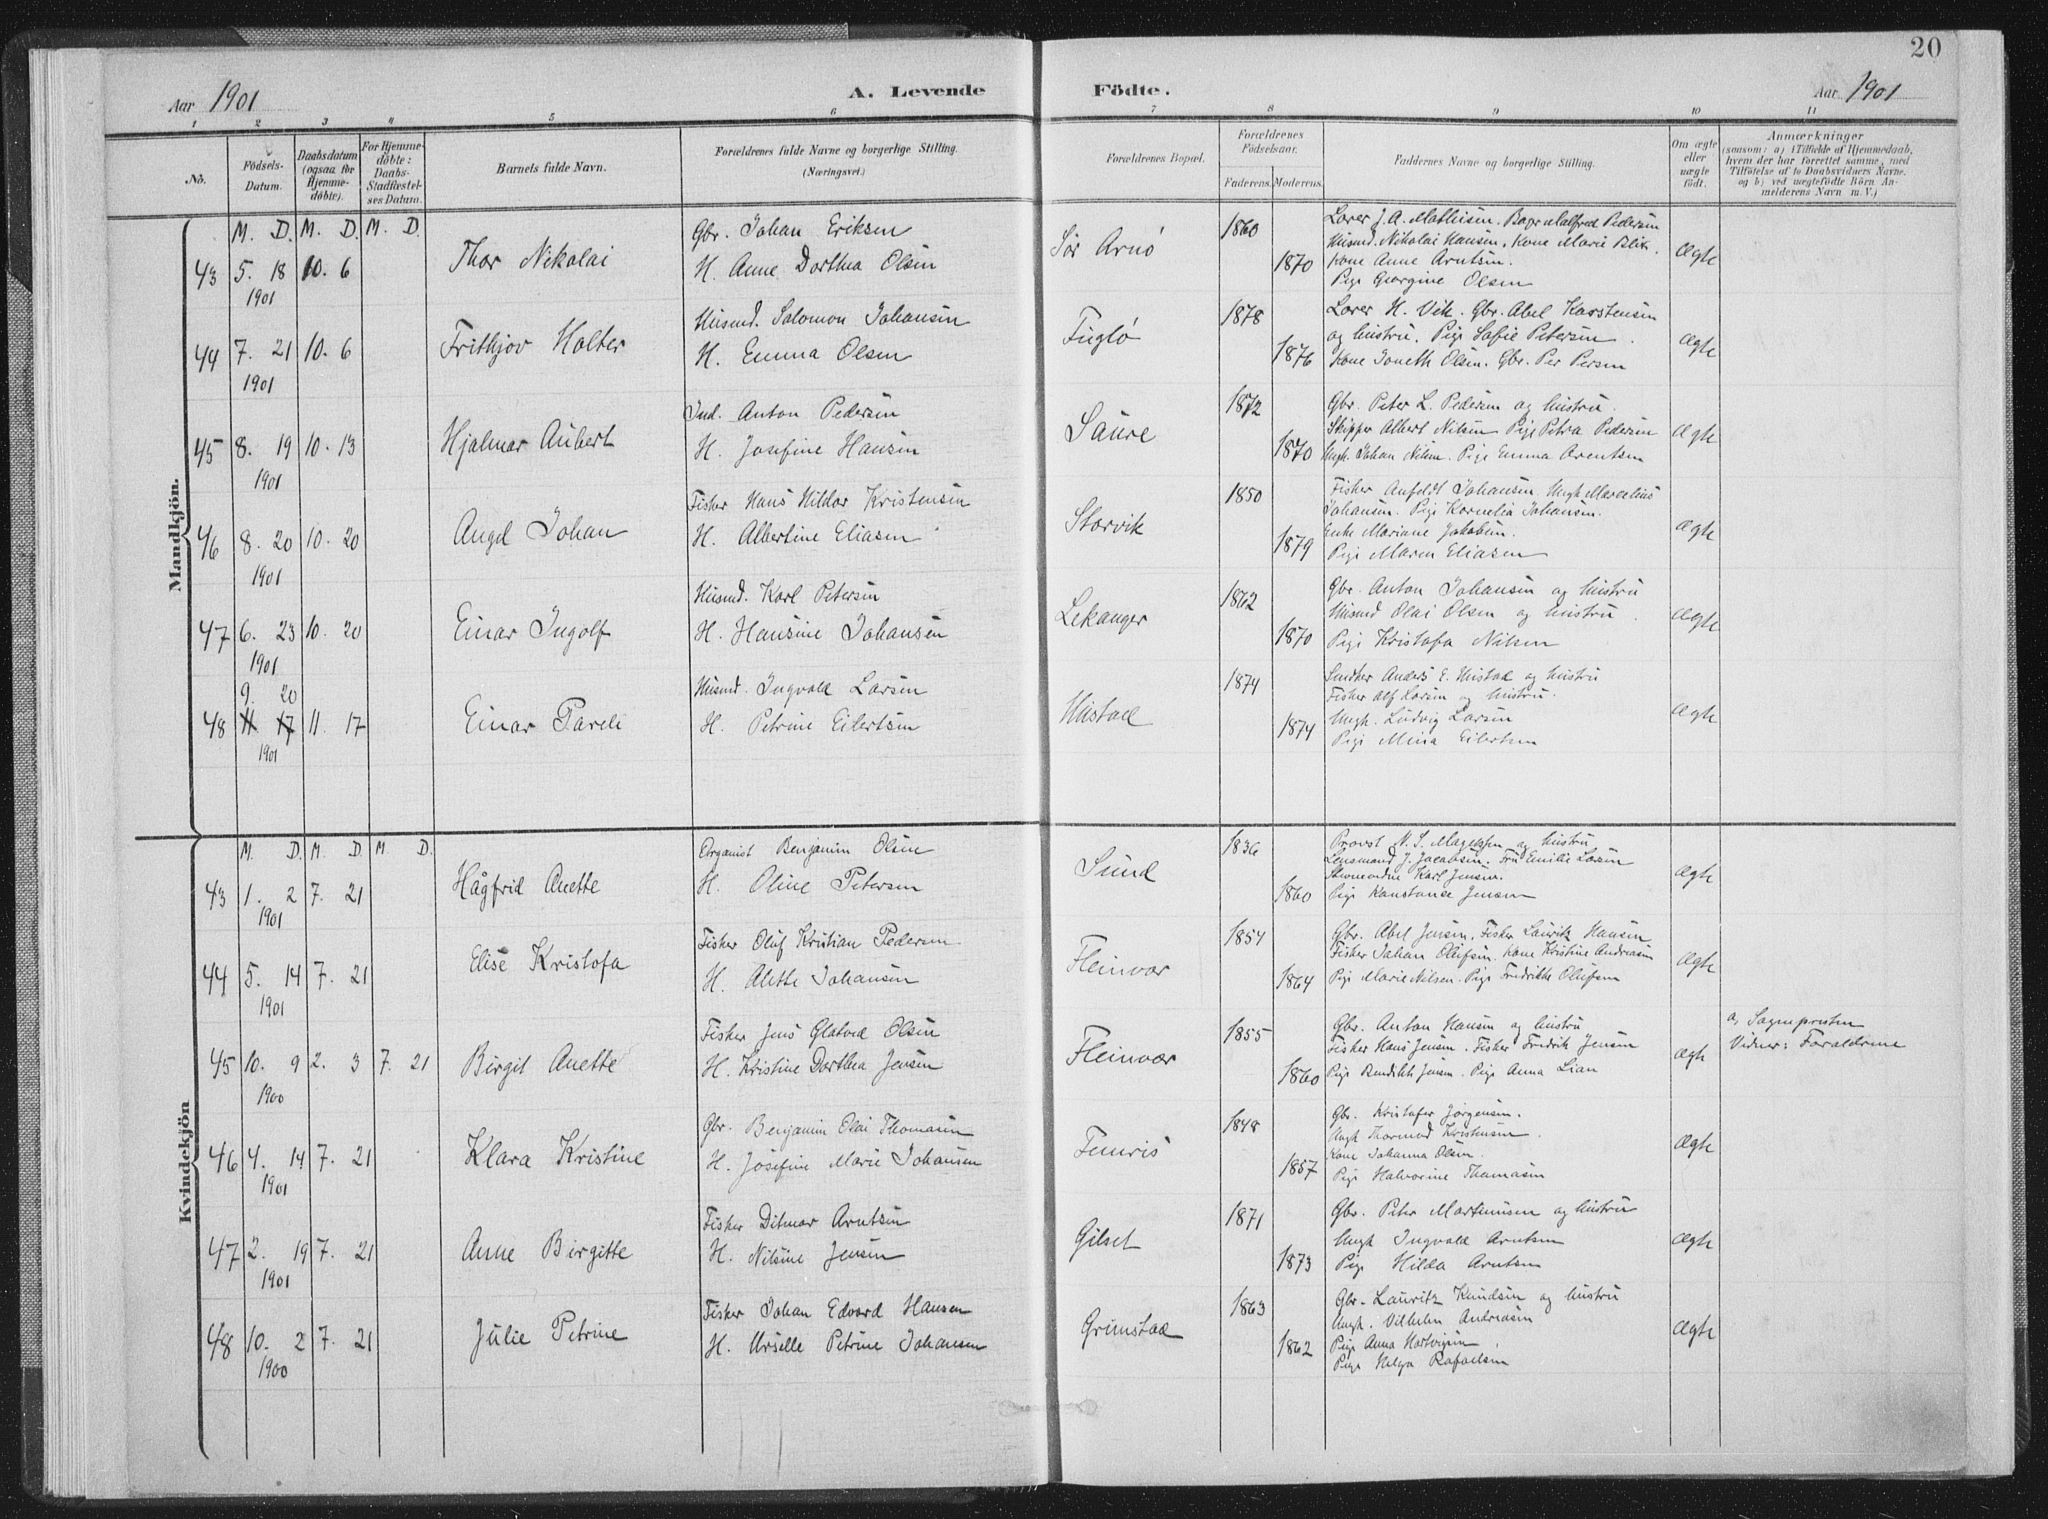 20
Aar 1901
A. Levende
Födte.
Aar 1901
1 2 3 4 5 6 7 8 9 10 11
No.
Födsels-
Datum.
Daabsdatum
(ogsaa for
Hjemme-
döbte).
For Hjemme-
döbte:
Daabs-
Stadfæstel-
ses Datum.
Barnets fulde Navn.
Forældrenes fulde Navne og borgerlige Stilling.
(Næringsvei.)
Forældrenes Bopæl.
Forældrenes
Födselsaar.
Faderens. Moderens.
Faddernes Navne og borgerlige Stilling.
Om ægte
eller
uægte
födt.
Anmærkninger
(saasom: a) i Tilfælde af Hjemmedaab,
hvem der har forrettet samme, med
Tilföielse af to Daabsvidners Navne.
og b) ved uægtefödte Börn An-
melderens Navn m. V.)
Mandkjön.
M. D. M. D. M. D
43 5. 18 10. 6
1901
Thor Nikolai
Gbr. Johan Eriksen
H. Anne Dorthea Olsen
Sör Arnö
1860
1870
Lærer J. A. Mathisen. Malfred Pedersen
Husmd. Nikolai Hansen. Kone Marie Blix.
Kone Anne Arntsen.
Pige Georgine Olsen
Ægte
44 7. 21 10. 6
1901
Frithjov Holter
Husmd. Salomon Johansen
H. Emma Olsen
Fuglö
1878
1876
Lærer H. Vik. Gbr. Abel Karstensen
og hustru. Pige Sofie Petersen
Kone Joneth Olsen. Gbr. Per Persen
Ægte
45 8. 19 10. 13
1901
Hjalmar Aubert
Ind. Anton Pedersen
H. Josefine Hansen
Saure
1872
1870
Gbr. Peter L. Pedersen og hustru.
Skipper Albert Nilsen Pige Petra Pedersen
Ungk. Johan Nilsen. Pige Emma Arentsen
Ægte
46 8. 20 10. 20
1901
Angel Johan
Fisker Hans Hildor Kristensen
H. Albertine Eliasen
Storvik
1850
1879
Fisker Anfeldt Johansen Ungk Marcelius
Johansen. Pige Kornelia Johansen.
Enke Mariane Jakobsen.
Pige Maren Eliasen
Ægte
47 6. 23 10. 20
1901
Einar Ingolf
Husmd. Karl Petersen
H. Hansine Johansen
Lekanger
1862
1870
Gbr. Anton Johansen og hustru
Husmd Olai Olsen og hustru.
Pige Kristofa Nilsen
Ægte
9. 20
48 11 17 11. 17
1901
Einar Pareli
Husmd. Ingvald Larsen
H. Petrine Eilertsen
Hustad
1874
1874
Anders E. Hustad og hustru
Fisker Alf Larsen og hustru.
Ungk. Ludvig Larsen
Pige Mina Eilertsen
Ægte
Kvindekjön
M. D. M. D M. D.
43 1. 2 7. 21
1901
Hågfrid Anette
Organist Benjamin Olsen
H. Oline Petersen
Sund
1836
1860
Provst M. S. Magelssen og hustru
Lensmand J. Jacobsen. Fru Emilie Larsen
Karl Jensen.
Pige Konstanse Jensen
Ægte
44 5. 14 7. 21
1901
Elise Kristofa
Fisker Oluf Kristian Pedersen
H. Alette Johansen
Fleinvær
1854
1864
Gbr. Abel Jensen. Fisker Laurits Hansen
Fisker Johan Olufsen. Kone Kristine Andreasen
Pige Marie Nilsen. Pige Fredrikke Olufsen
Ægte
45 10. 9 2. 3 7. 21
1900
Birgit Anette
Fisker Jens Glatved Olsen
H. Kristine Dorthea Jensen
Fleinvær
1855
1860
Gbr. Anton Hansen og hustru
Fisker Hans Jensen. Fisker Fredrik Jensen
Pige Bendikte Jensen. Pige Anna Lian
Ægte
a, Sognepresten
Vidner: Forældrene
46 4. 14 7. 21
1901
Klara Kristine
Gbr. Benjamin Olai Thomasen
H. Josefine Marie Johansen
Femris
1848
1857
Gbr. Kristofer Jörgensen.
Ungk Thormod Kristensen.
Kone Johanna Olsen.
Pige Halvorine Thomasen
Ægte
47 2. 19 7. 21
1901
Anne Birgitte
Fisker Ditmar Arntsen
H. Nilsine Jensen
Gilset
1871
1873
Gbr. Peter Martinusen og hustru
Ungk Ingvald Arntsen
Pige Hilda Arntsen
Ægte
48 10. 2 7. 21
1900
Julie Petrine
Fisker Johan Edvard Hansen
H. Urselle Petrine Johansen
Grimstad
1863
1862
Gbr. Lauritz Knudsen og hustru
Ungk. Vilhelm Andreasen
Pige Anna Hartvigsen
Pige Helga Rafaelsen
Ægte